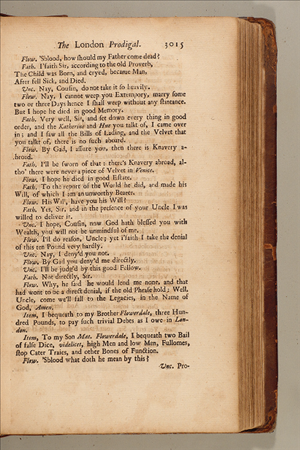 The London Prodigal. 3015
Flow. 'Sblood, how should my Father come dead?
Fath. I'faith Sir, according to the old Proverb,
The Child was Born, and cryed, became Man,
After fell Sick, and Died.
Unc. Nay, Cousin, do not take it so heavily.
Flow. Nay, I cannot weep you Extempory, marry some
two or three Days hence I shall weep without any stintance.
But I hope he died in good Memory.
Fath. Very well, Sir, and set down every thing in good
order, and the Katherine and Hue you talkt of, I came over
in: and I saw all the Bills of Lading, and the Velvet that
you talkt of, there is no such aboard.
Flow. By Gad, I assure you, then there is Knavery a-
broad.
Fath. I'll be sworn of that: there's Knavery abroad, al-
tho' there were never a piece of Velvet in Venice.
Flow. I hope he died in good Estate.
Fath. To the report of the World he did, and made his
Will, of which I am an unworthy Bearer.
Flow. His Will, have you his Will?
Fath. Yes, Sir, and in the presence of your Uncle I was
willed to deliver it.
Unc. I hope, Cousin, now God hath blessed you with
Wealth, you will not be unmindful of me.
Flow. I'll do reason, Uncle; yet i'faith I take the denial
of this ten Pound very hardly.
Unc. Nay, I deny'd you not.
Flow. By God you deny'd me directly.
Unc. I'll be judg'd by this good Fellow.
Fath. Not directly, Sir.
Flow. Why, he said he would lend me none, and that
had wont to be a direct denial, if the old Phrase hold: Well,
Uncle, come we'll fall to the Legacies, in the Name of
God, Amen.
Item, I bequeath to my Brother Flowerdale, three Hun-
dred Pounds, to pay such trivial Debts as I owe in Lon-
don.
Item, To my Son Mat. Flowerdale, I bequeath two Bail
of false Dice, videlicet, high Men and low Men, Fullomes,
stop Cater Traies, and other Bones of Function.
Flow. 'Sblood what doth he mean by this?
Unc. Pro-